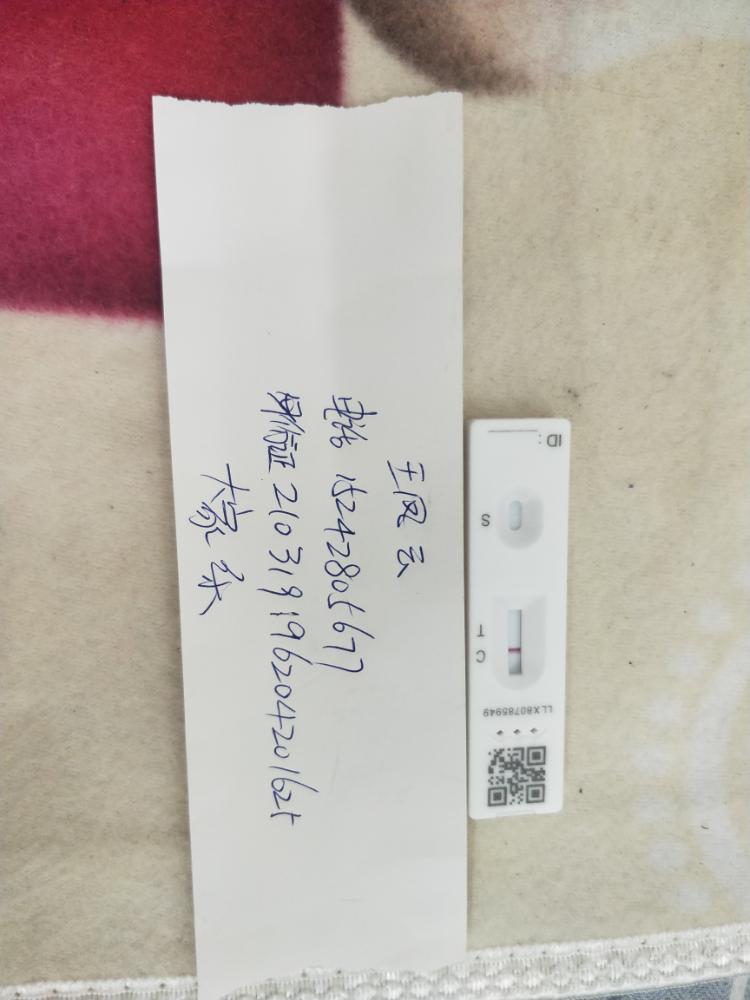 王凤云
电话 15242805677
身份证 210319196204201625
大家头
ID:
S
T
C
LLX80785949